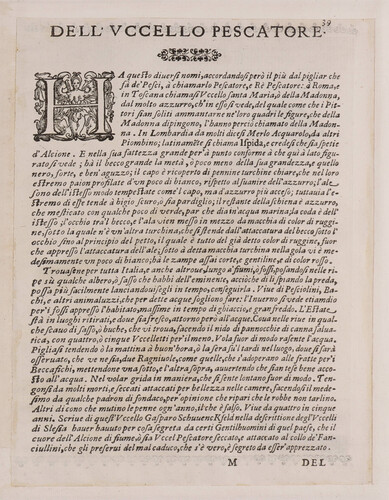 39
DELL'VCCELLO PESCATORE.
HA questo diuersi nomi, accordandosi però il più dal pigliar che
fà de' Pesci, à chiamarlo Pescatore, e Rè Pescatore: à Roma, e
in Toscana chiamasi Vccello santa Maria, ò della Madonna,
dal molto azzurro, ch'in esso si vede, del quale come che i Pit-
tori sian soliti ammantarne ne'loro quadri le figure, che della
Madonna dipingono, l'hanno perciò chiamato della Madon-
na. In Lombardia da molti dicesi Merlo Acquarolo, da altri
Piombino; latinamẽte si chiama Ispida, e credesi che sia spetie
d'Alcione. E nella sua fattezza grande per'à punto conforme à che quì à lato figu-
rato si vede; hà il becco grande la metà, ò poco meno della sua grandezza, e quello
nero, forte, e ben'aguzzo; il capo è ricoperto di pennine turchine chiare, che nel loro
estremo paion profilate d'vn poco di bianco, rispetto al suanire dell'azzurro; l'al, so-
no dell'istesso modo tempestate come'l capo, ma d'azzurro più acceso; tuttauia l'e-
stremo di esse tende à bigio scuro, ò sia pardiglio; il restante della schiena è azzurro,
che mesticato con qualche poco di verde, par che dia in acqua marina; la coda è del-
l'istesso; l'occhio trà l'becco, e l'ala vien messo in mezzo da macchia di color di ruggi-
ne, sotto la quale n'è vn'altra turchina, ch'estende dall'attaccatura del becco sotto l'
occhio sino al principio del petto, il quale è tutto del già detto color di ruggine, fuor
che appresso l'attaccatura dell'ale; sotto à detta macchia turchina nella gola vi è me-
desimamente vn poco di bianco; hà le zampe assai corte, e gentili, e di color rosso.
Trouasene per tutta Italia, e anche altroue, lungo à fiumi, ò fossi, posandosi nelle ri-
pe sù qualche albero, ò sasso che habbi dell'eminente, acciòche di lì spiando la preda,
possa più facilmente lanciandouisi gli in tempo, conseguirla. Viue di Pesciolini, Ba-
chi, e altri animaluzzi, che per dette acque sogliono fare: l'Inuerno si vede etiamdio
per i fossi appresso l'habitato, massime in tempo di ghiaccio, e gran freddo. L'Estate
stà in luoghi ritirati, e doue sia fresco, attorno però all'acqua. Coua nelle riue in qual-
che scauo di sasso, ò buche, che vi troua, facendo il nido di pannocchie di canna salua-
rica, con quattro, ò cinque Vccelletti per il meno. Vola fuor di modo rasente l'acqua.
Pigliasi tendendo ò la mattina à buon'hora, ò la sera sù'l tardi nel luogo, doue si sarà
osseruato, che ve ne sia, due Ragniuole, come quelle, che s'adoperano alle fratte per i
Beccafichi, mettendone vna sotto, e l'altra sopra, auuertendo che sian tese bene acco-
sto all'acqua. Nel volar grida in maniera, che si sente lontano fuor di modo. Ten-
gonsi da molti morti, e seccati attaccati per bellezza nelle camere, facendosi il mede-
simo da qualche padron di fondaco, per opinione che ripari che le robbe non tarlino.
Altri dicono che mutino le penne ogn'anno, il che è falso. Viue da quattro in cinque
anni. Scriue di quest'Vccello Gasparo SchuuencKfeld nella descrittione degl'Vccelli
di Slesia hauer hauuto per cosa segreta da certi Gentilhuomini di quel paese, che il
cuore dell'Alcione di fiume, ò sia Vccel Pescatore seccato, attaccato al collo de' Fan-
ciullini, che gli preserui del mal caduco, che s'è vero, è segreto da esser'apprezzato.
M
DEL